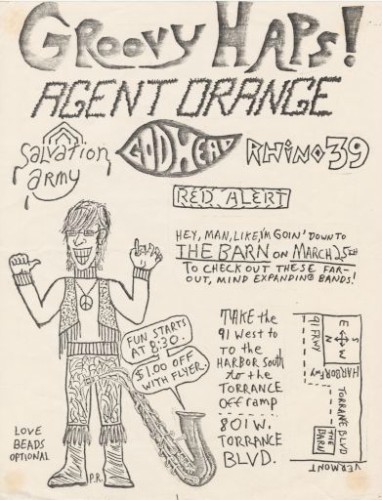 GROOVY HAPS!
AGENT ORANGE
SALVATION
ARMY
GODHEAD
RHINO 39
RED ALERT
HEY, MAN, LIKE, I'M GOIN' DOWN TO
THE BARN ON MARCH 25TH
TO CHECK OUT THESE FAR-
OUT, MIND EXPANDING BANDS!
FUN STARTS
AT 8:30.
$1.00 OFF
WITH FLYER.
TAKE the
91 West to
to the
HARBOR South
to the
TORRANCE
Off ramp
801 W.
TORRANCE
BLVD.
S
E W
N
91 FRWY
HARBOR FWY
TORRANE BLVD
THE
BARN
VERMONT
LOVE
BEADS
OPTIONAL
P.R.